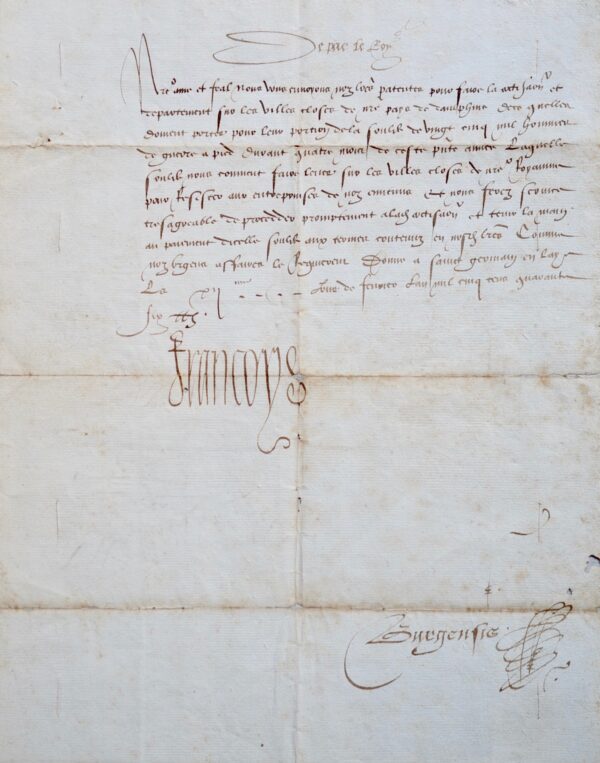 De par le Roy
Nre ame et feal Nous vous envoyons noz lres patentes pour faire la cotisaon et
departement sur les villes closes de nre pays de daulphine des quelles
doivent porter pour leur portion de la soulde de vingt cinq mil hommes
de guerre a pied durant quatre moys de ceste pnte annee Laquelle
soulde nous convient faire lever sur les villes closes de nre Royaume
pour Resister aux entreprinses de noz ennemis Et nous ferez service
tresagreable de proceder promptement a lad cotisaon et tenir la main
au paiement dicelle soulde aux termes contenuz en nosd lres Comme
noz urgens affaires le Requierent Donne a saint germain en laye
Le xii jour de fevrier Lan mil cinq cens quarante
six
Francoys
Burgensis